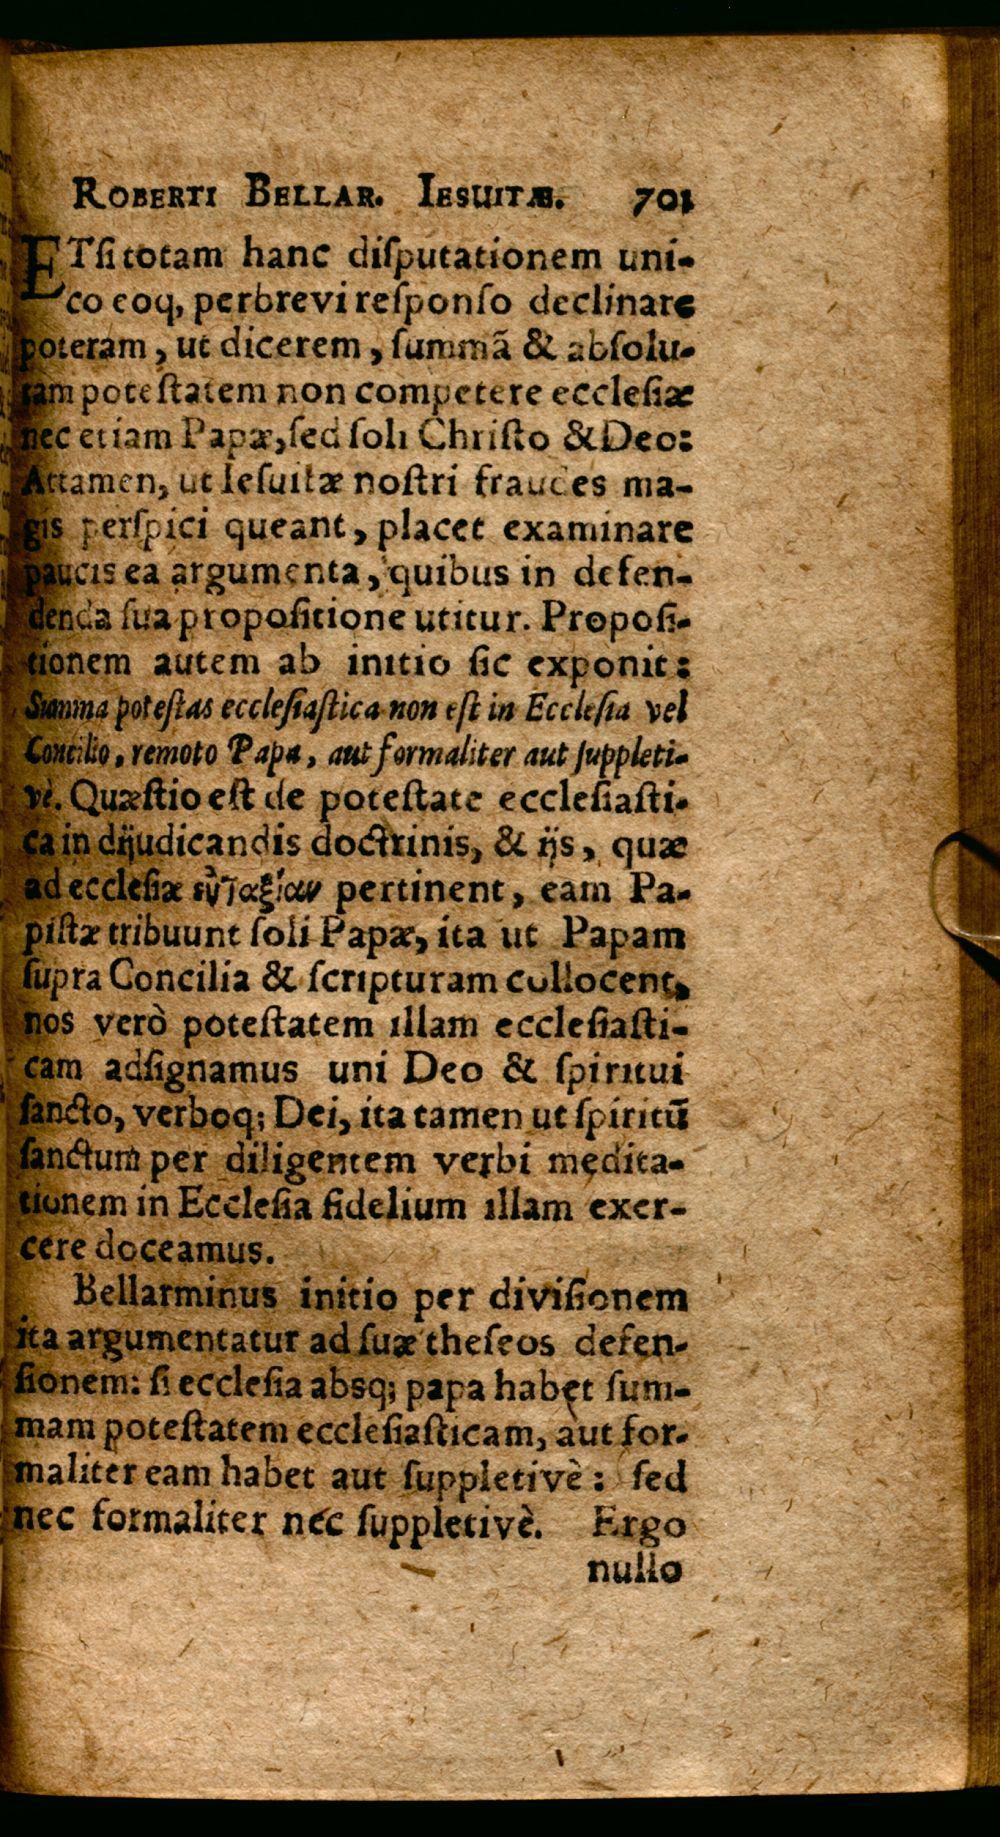 ROBERTI BELLAR. IESUITÆ. 701
ETſi totam hanc diſputationem uni-
co eoq, perbrevi reſponſo declinare
poteram, ut dicerem, ſummã & abſolu-
tam poteſtatem non competere eccleſiæ
nec etiam Papæ, ſed ſoli Chriſto & Deo:
Attamen, ut Ieſuitæ noſtri fraudes ma-
gis perſpici queant, placet examinare
paucis ea argumenta, quibus in defen-
denda ſua propoſitione utitur. Propoſi-
tionem autem ab initio ſic exponit:
Summa poteſtas eccleſiaſtica non eſt in Eccleſia vel
Concilio, remoto Papa, aut formaliter aut ſuppleti-
vè. Quæſtio eſt de poteſtate eccleſiaſti-
ca in dijudicandis doctrinis, & ijs, quæ
ad eccleſiæ εὐταξίαν pertinent, eam Pa-
piſtæ tribuunt ſoli Papæ, ita ut Papam
ſupra Concilia & ſcripturam collocent,
nos verò poteſtatem illam eccleſiaſti-
cam adſignamus uni Deo & ſpiritui
ſancto, verboq; Dei, ita tamen ut ſpiritũ
ſanctum per diligentem verbi medita-
tionem in Eccleſia fidelium illam exer-
cere doceamus.
Bellarminus initio per diviſionem
ita argumentatur ad ſuæ theſeos defen-
ſionem: ſi eccleſia absq; papa habet ſum-
mam poteſtatem eccleſiaſticam, aut for-
maliter eam habet aut ſuppletivè: ſed
nec formaliter nec ſuppletivè. Ergo
nullo